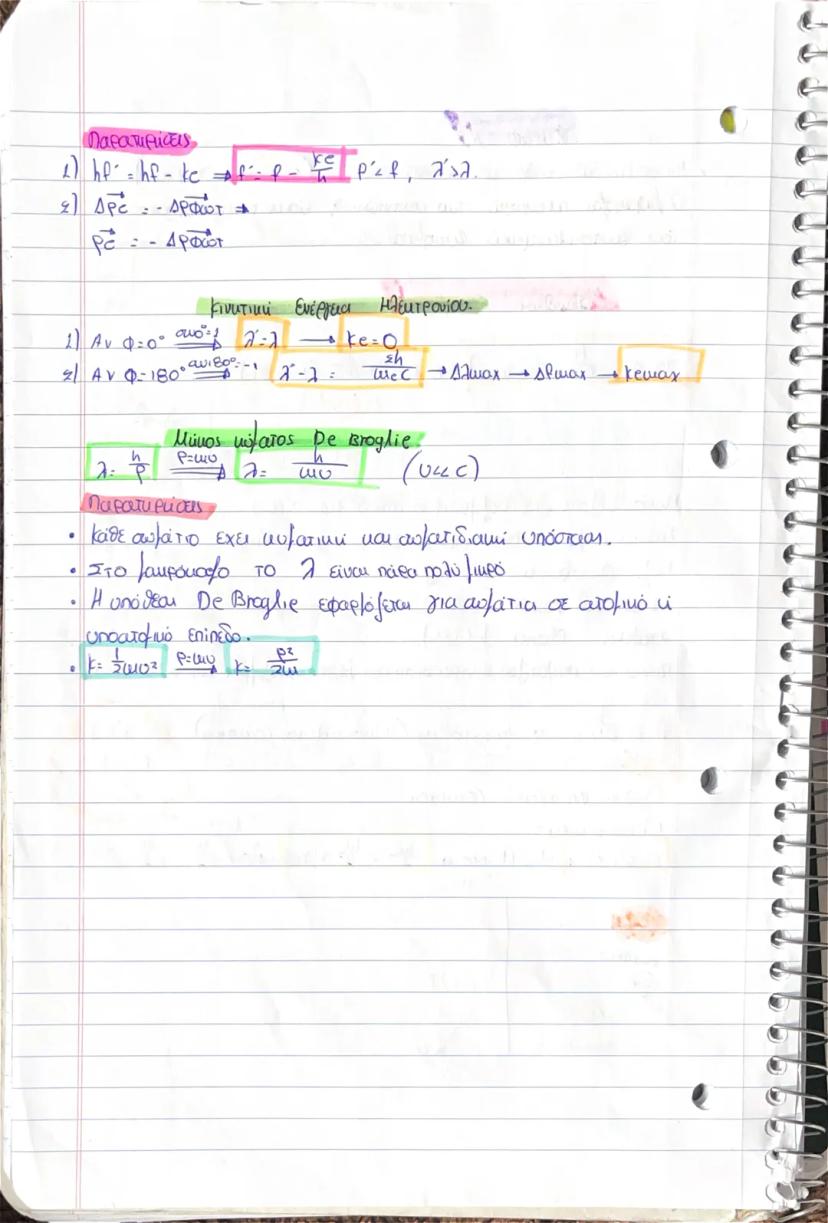 Παρατηρήσεις
1) hf' = hf - Ke ⇒ f' = f - Ke/h f' < f, λ' > λ.
2) Δp⃗e = - Δp⃗φωτ ⇒
p⃗e = - Δp⃗φωτ
Κινητική Ενέργεια Ηλεκτρονίου.
1) Αν φ=0° συν0°=1 ⇒ λ'=λ → Ke=0
2) Αν φ=180° συν180°=-1 ⇒ λ'-λ = 2h/mec → Δλmax → Δfmax → Kemax
Μήκος κύματος De Broglie.
λ = h/p p=mυ ⇒ λ = h/mυ (υ<<c)
Παρατηρήσεις
• Κάθε σωμάτιο έχει κυματική και σωματιδιακή υπόσταση.
• Στο μακρόκοσμο το λ είναι πάρα πολύ μικρό
• Η υπόθεση De Broglie εφαρμόζεται για σωμάτια σε ατομικό ή
υποατομικό επίπεδο.
• K = 1/2mυ² p=mυ ⇒ K = p²/2m